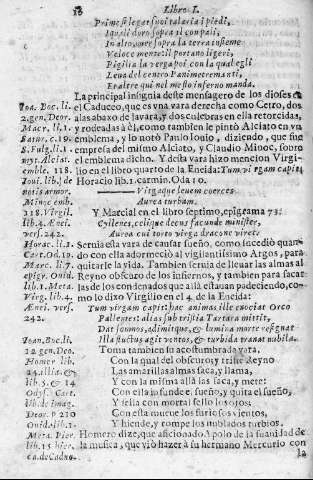 18 Libro I.
Prima si legar suoi talaria i piedi,
I quali d'oro sopra il con pali,
In alto, over sopra la terra insieme
Veloce mente il portano ligeri,
Piglia la verga poi con la qual egli
Leva del centro l'anime tremanti,
E raltre qui nel mesto inferno manda.
La principal insignia deste mensagero de los dioses es
el Caduceo, que es vna vara derecha como Cetro, dos
alas abaxo de la vara, y dos culebras en ella retorcidas,
y rodeadas à él, como tambien le pintò Alciato en vn
emblema, y lo notò Paulo Iouio, diziendo, que fue
empresa del mismo Alciato, y Claudio Minoe, sobre
el emblema dicho. Y desta vara hizo mencion Virgi-
lio en el libro quarto de la Eneida: Tum virgam capit;
Horacio lib. 1. carmin. Oda 10.
Virgaque levem coerces
Aurea turbam.
Y Marcial en el libro septimo, epigrama 73:
Cyllenes, cœlique decus facunde minister,
Aurea cui torto virga dracone viret.
Seruia esta vara de causar sueño, como sucediò quan-
do con ella adormeciò al vigilantissimo Argos, para
quitarle la vida. Tambien seruia de lleuar las almas al
Reyno obscuro de los infiernos, y tambien para sacar
las de los condenados que allà estauan padeciendo, co-
mo lo dixo Virgilio en el 4. de la Eneida:
Tum virgam capit: hac animas ille euocat Orco
Pallentes: alias sub tristia Tartara mittit,
Dat somnos, adimitque, & lumina morte resignat
Illa fretus agit ventos, & turbida tranat nubila.
Toma tambien su acostumbrada vara,
Con la qual del obscuro, y triste Reyno
Las amarillas almas saca, y llama,
Y con la misma allà las saca, y mete:
Con ella infunde el sueño, y quita el sueño,
Y sella con mortal sello los ojos:
Con esta mueue los furiosos vientos,
Y hiende, y rompe los nublados turbios.
Homero dize, que aficionado Apolo de la suauidad de
la musica, que viò hazer à su hermano Mercurio con
la
Ioa. Boc. li.
2. gen. Deor.
Macr. li. 1.
Satur. c. 19.
S. Fulg. li. 1.
myt. Alciat.
emble. 118.
Ioui. lib. de
notis armor.
Minoe emb.
118. Virgil.
lib. 4. Ænei.
vers. 242.
Horac. li. 1.
Car. Od. 10.
Marc. li. 7.
epigr. Ouid.
lib. 1. Meta.
Virg. lib. 4.
Ænei. vers.
242.
Ioan. Boc. li.
12. gen. Deo.
Homer lib.
24. illia. &
lib. 5. & 14
Odys. Cart.
lib. de imag.
Deor. p 210
Ouid. lib. 1.
Meta. Pier.
lib. 15 hier.
ca. de Caduc.